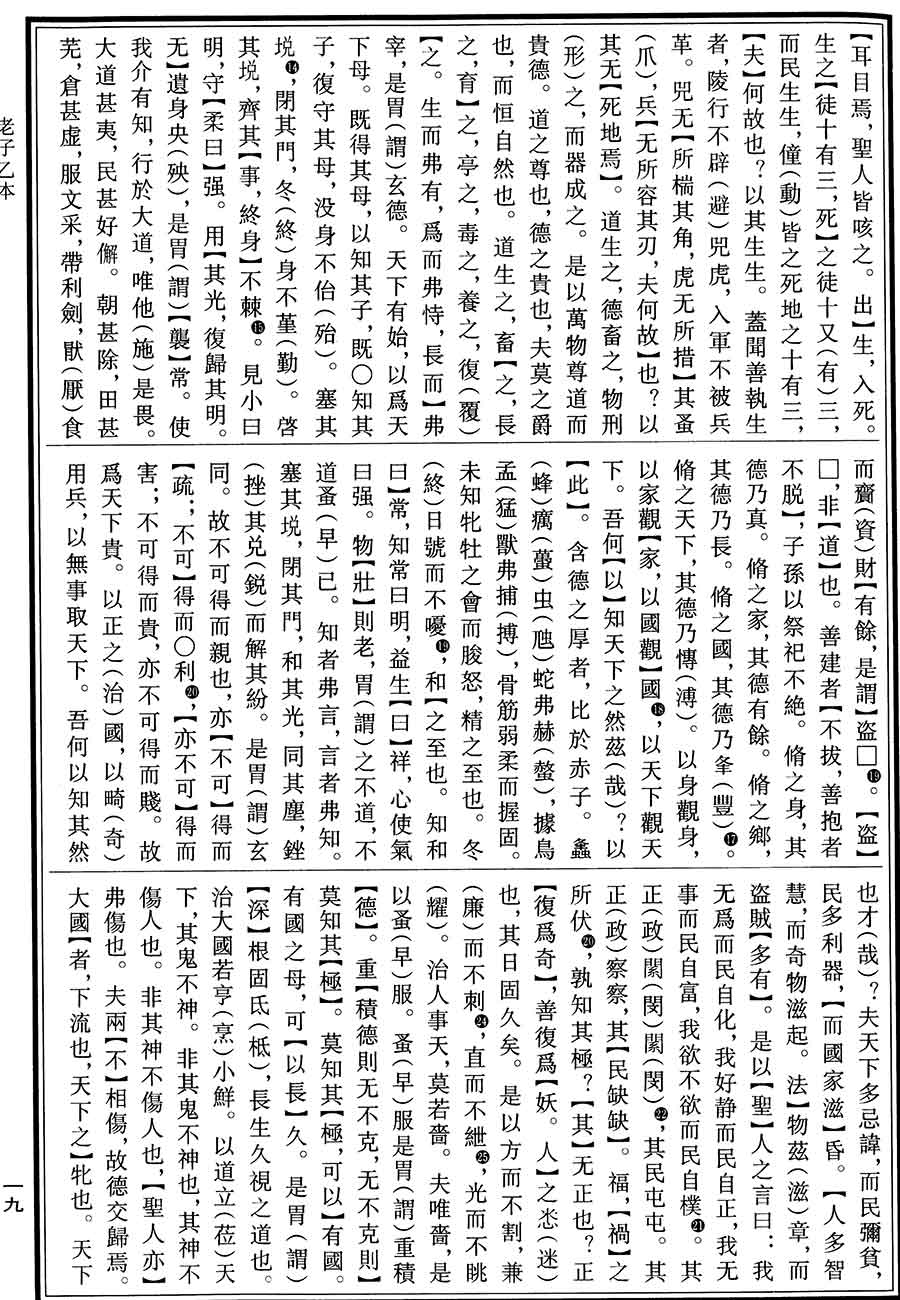 【耳目焉，聖人皆咳之。出】生，入死。
生之【徒十有三，死】之徒十又（有）三，
而民生生，僮（動）皆之死地之十有三，
【夫】何故也？以其生生。蓋聞善執生
者，陵行不辟（避）兕虎，入軍不被兵
革。兕无【所椯其角，虎无所措】其蚤
（爪），兵【无所容其刃，夫何故】也？以
其无【死地焉】。道生之，德畜之，物刑
（形）之，而器成之。是以萬物尊道而
貴德。道之尊也，德之貴也，夫莫之爵
也，而恒自然也。道生之，畜【之，長
之，育】之，亭之，毒之，養之，復（覆）
【之。生而弗有，爲而弗恃，長而】弗
宰，是胃（謂）玄德。天下有始，以爲天
下母。既得其母，以知其子，既〇知其
子，復守其母，没身不佁（殆）。塞其
㙂⓮，閉其門，冬（終）身不堇（勤）。啓
其㙂，齊其【事，終身】不棘⓯。見小曰
明，守【柔曰】强。用【其光，復歸其明。
无】遺身央（殃），是胃（謂）【襲】常。使
我介有知，行於大道，唯他（施）是畏。
大道甚夷，民甚好懈。朝甚除，田甚
芜，倉甚虚，服文采，帶利劍，猒（厭）食
而齎（資）財【有餘，是謂】盗□⓰。【盗】
□，非【道】也。善建者【不拔，善抱者
不脱】，子孫以祭祀不絶。脩之身，其
德乃真。脩之家，其德有餘。脩之鄉，
其德乃長。脩之國，其德乃夆（豐）⓱。
脩之天下，其德乃愽（溥）。以身觀身，
以家觀【家，以國觀】國⓲，以天下觀天
下。吾何【以】知天下之然茲（哉）？以
【此】。含德之厚者，比於赤子。螽
（蜂）癘（蠆）虫（虺）蛇弗赫（螫），據鳥
孟（猛）獸弗捕（搏），骨筋弱柔而握固。
未知牝牡之會而朘怒，精之至也。冬
（終）日號而不嚘⓳，和【之至也。知和
曰】常，知常曰明，益生【曰】祥，心使氣
曰强。物【壯】則老，胃（謂）之不道，不
道蚤（早）已。知者弗言，言者弗知。
塞其㙂，閉其門，和其光，同其塵，銼
（挫）其兑（鋭）而解其紛。是胃（謂）玄
同。故不可得而親也，亦【不可】得而
【疏；不可】得而〇利⓴，【亦不可】得而
害；不可得而貴，亦不可得而賤。故
爲天下貴。以正之（治）國，以畸（奇）
用兵，以無事取天下。吾何以知其然
也才（哉）？夫天下多忌諱，而民彌貧，
民多利器，【而國家滋】昏。【人多智
慧，而奇物滋起。法】物茲（滋）章，而
盗賊【多有】。是以【聖】人之言曰：我
无爲而民自化，我好静而民自正，我无
事而民自富，我欲不欲而民自樸㉑。其
正（政）閵（閔）閵（閔）㉒，其民屯屯。其
正（政）察察，其【民缺缺】。福，【禍】之
所伏⓴，孰知其極？【其】无正也？正
【復爲奇】，善復爲【妖。人】之悉（迷）
也，其日固久矣。是以方而不割，兼
（廉）而不刺㉔，直而不紲㉕，光而不眺
（耀）。治人事天，莫若嗇。夫唯嗇，是
以蚤（早）服。蚤（早）服是胃（謂）重積
【德】。重【積德則无不克，无不克則】
莫知其【極】。莫知其【極，可以】有國。
有國之母，可【以長】久。是胃（謂）
【深】根固氐（柢），長生久視之道也。
治大國若亨（烹）小鮮。以道立（莅）天
下，其鬼不神。非其鬼不神也，其神不
傷人也。非其神不傷人也，【聖人亦】
弗傷也。夫兩【不】相傷，故德交歸焉。
大國【者，下流也，天下之】牝也。天下
老子乙本
一九